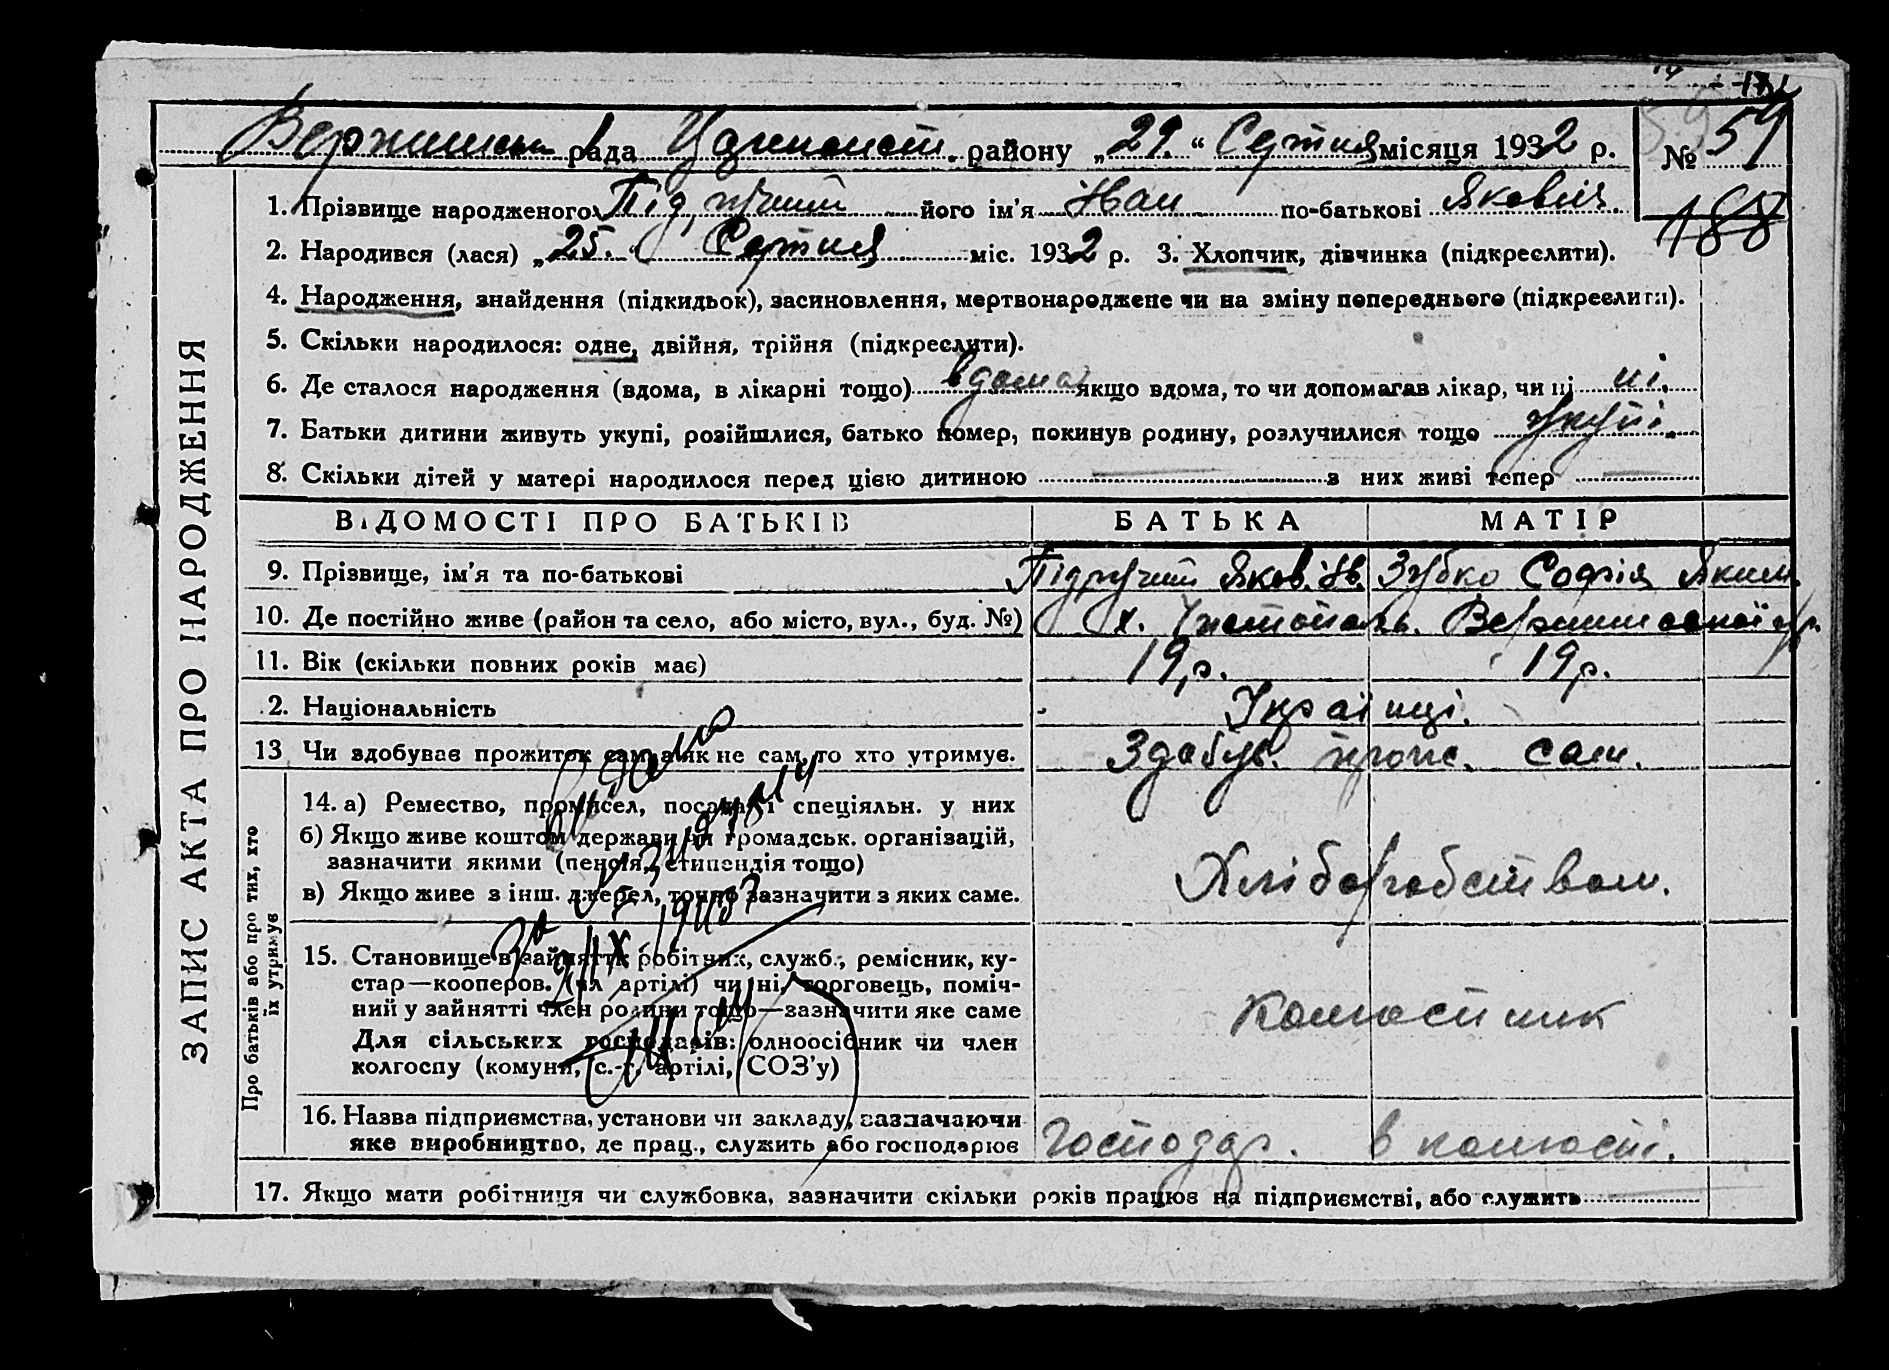 рада району „29“ Серпня місяця 1932 р. № 59
188
1. Прізвище народженого Підручний його ім’я Іван по-батькові Якович
2. Народився (лася) „25.“ Серпня міс. 1932 р. 3. Хлопчик, дівчинка (підкреслити).
4. Народження, знайдення (підкидьок), засиновлення, мертвонароджене чи на зміну попереднього (підкреслити).
5. Скільки народилося: одне, двійня, трійня (підкреслити).
6. Де сталося народження (вдома, в лікарні тощо) вдома якщо вдома, то чи допомагав лікар, чи ні ні.
7. Батьки дитини живуть укупі, розійшлися, батько помер, покинув родину, розлучилися тощо укупі.
8. Скільки дітей у матері народилося перед цією дитиною з них живі тепер
ЗАПИС АКТА ПРО НАРОДЖЕННЯ
ВІДОМОСТІ ПРО БАТЬКІВ БАТЬКА МАТІР
9. Прізвище, ім’я та по-батькові Підручний Яков. Ів. Зубко Софія Яким.
10. Де постійно живе (район та село, або місто, вул., буд. №) х.
11. Вік (скільки повних років має) 19 р. 19 р.
2. Національність Українці.
13 Чи здобував прожиток сам, а як не сам, то хто утримує. Здобув. прож. сам.
Про батьків або про тих, хто їх утримує
14. а) Ремество, промисел, посада і спеціяльн. у них
б) Якщо живе коштом держави чи громадськ. організацій,
зазначити якими (пенсія, стипендія тощо)
в) Якщо живе з інш. джерел, точно зазначити з яких саме.
Хліборобством.
15. Становище в занятті: робітник, служб., ремісник, ку-
стар—кооперов. (чл артілі) чи ні, торговець, поміч-
ний у зайнятті член родини тощо—зазначити яке саме
Для сільських господарів: одноосібник чи член
колгоспу (комуни, с.-г. артілі, СОЗ’у)
16. Назва підприємства, установи чи закладу, зазначаючи
яке виробництво, де прац., служить або господарює
Господар. в
17. Якщо мати робітниця чи службовка, зазначити скільки років працює на підприємстві, або служить